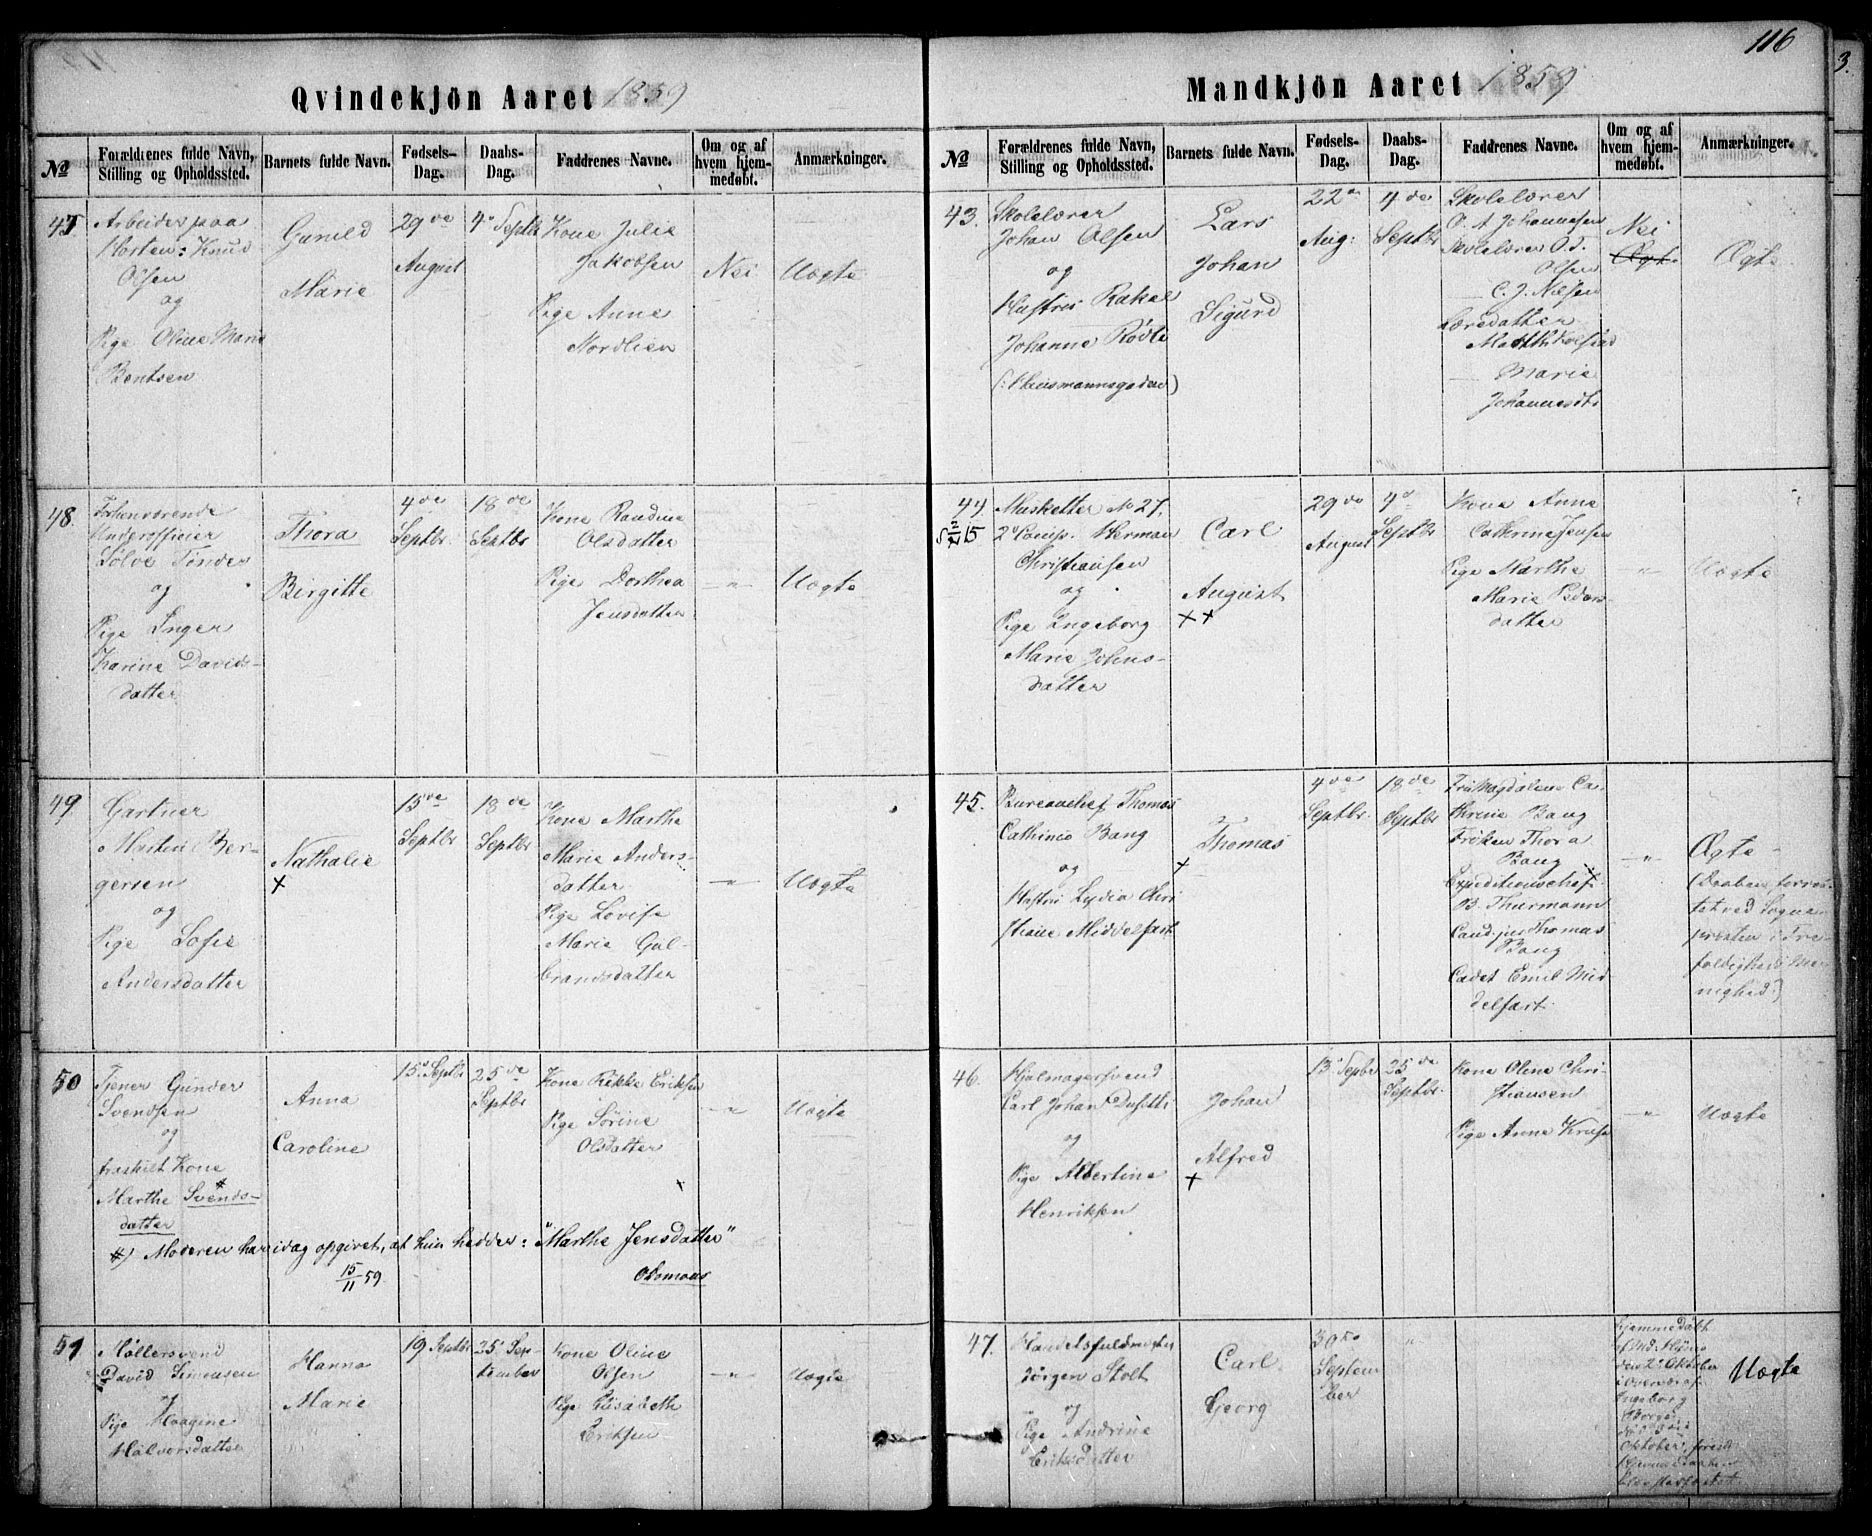 116
Qvindekjön Aaret 1859
№
Forældrenes fulde Navn, Stilling og Opholdssted.
Barnets fulde Navn.
Fødsels-Dag.
Daabs-Dag.
Faddrenes Navne.
Om og af hvem hjemmedøbt.
Anmærkninger.
47
Arbeider paa
Horten: Knud
Olsen
og
Pige Oline Marie
Bentsen
Gunild
Marie
29de
August
4de Septbr
Kone Julie
Jakobsen
Pige Anne
Nordlien
Nei
Uægte
48.
Forhenværende
Underofficier
Sølve Tønder
og
Pige Inger
Karine Davids-
datter
Thora
Birgitte
4de
Septbr.
18de
Septbr
Kone Randine
Olsdatter
Pige Dorthea
Jensdatter
"
Uægte
49.
Gartner
Martin Ber-
gersen
og
Pige Sofie
Andersdatter
Nathalie
+
13de
Septbr
18de
Septbr
Kone Marthe
Marie Anders-
datter
Pige Lovise
Marie Gul-
brandsdatter
"
Uægte
50
Tjener Gunder
Svendsen
og
fraskilt Kone
Marthe Svends-
datter
Anna
Caroline
15de Septbr
25de
Septbr
Kone Rikke Eriksen
Pige Sörine
Olsdatter
"
Uægte
#) Moderen har idag opgivet, at hun hedder: "Marthe Jensdatter"
15/11 59
51
Møllersvend
David Simensen
og
Pige Haagine
Halvorsdatter
Hanna
Marie
19 Septbr
25 Sep-
tember
Kone Oline
Olsen
Pige Elisabeth
Eriksen
"
Uægte
Mandkjön Aaret 1859
№
Forældrenes fulde Navn, Stilling og Opholdssted.
Barnets fulde Navn.
Fødsels-Dag.
Daabs-Dag.
Faddrenes Navne.
Om og af hvem hjemmedøbt.
Anmærkninger.
43.
Skolelærer
Johan Olsen
og
Hustru Rakel
Johanne
Lars
Johan
Sigurd
22de
Aug:
4de
Septbr
Skolelærer
O. A. Johannesen
Skolelærer O. J.
Olsen
C. J. Nielsen
Marie
Johannesdtr
Nei
Ægte
Ægte
44.
Musketter No 27.
2de Comp. Herman
Christiansen
og
Pige Ingeborg
Marie Johns-
datter
Carl
August
++
29de
August
4de
Septbr
Kone Anne
Cathrine Jensen
Pige Marthe
Marie Peders-
datter
"
Uægte
45.
Bureauchef Thomas
Cathinco Bang
og
Hustru Lydia Chri
stiane Middelfart
Thomas
+
4de
Septbr.
18de
Septbr
Fru Magdalene Ca-
thrine Bang
Frøken Thora
Bang
Expeditionschef
B. Thurmann
Cand. jur. Thomas
Bang
Cadet Emil Mid
delfart
"
Ægte
(Daaben forret-
tet ved Sogne-
presten i Tre-
foldigheds Me-
nighed.)
46.
Hjulmagersvend
Carl Johan
og
Pige Albertine
Henriksen
Johan
Alfred
+
13de Septbr
25de
Septbr.
Kone Oline Chri
stiansen
Pige Anne Kruse
"
Uægte
47.
Handelsfuldmægtig
Jörgen Stolt
og
Pige Andrine
Eriksdatter
Carl
Georg
30te
Septem
ber
"
Hjemmedøbt
den 2de Oktober
Ingeborg
Oktober
Uægte
3.